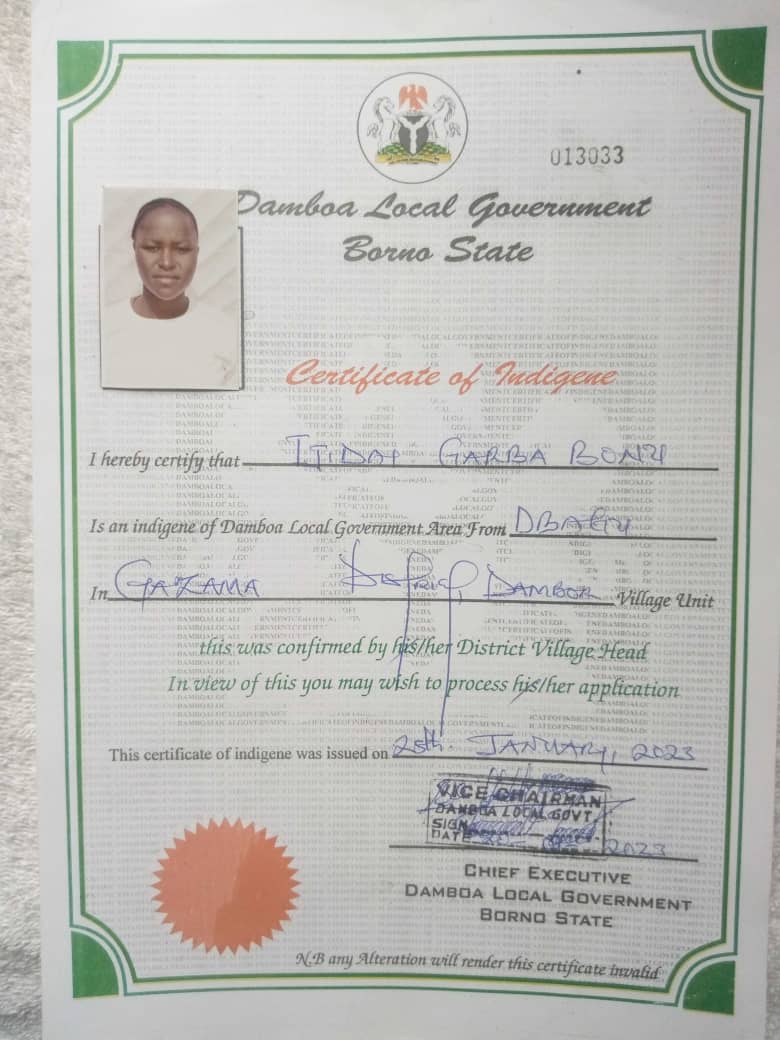 013033
Damboa Local Government
Borno State
Certificate of Indigene
I hereby certify that GARBA
Is an indigene of Damboa Local Government Area From
In GAZAMA District, DAMBOA Village Unit
this was confirmed by his/her District Village Head
In view of this you may wish to process his/her application
This certificate of indigene was issued on 28th. JANUARY, 2023
VICE CHAIRMAN
DAMBOA LOCAL GOVT
SIGN
DATE 2023
CHIEF EXECUTIVE
DAMBOA LOCAL GOVERNMENT
BORNO STATE
N.B any Alteration will render this certificate invalid